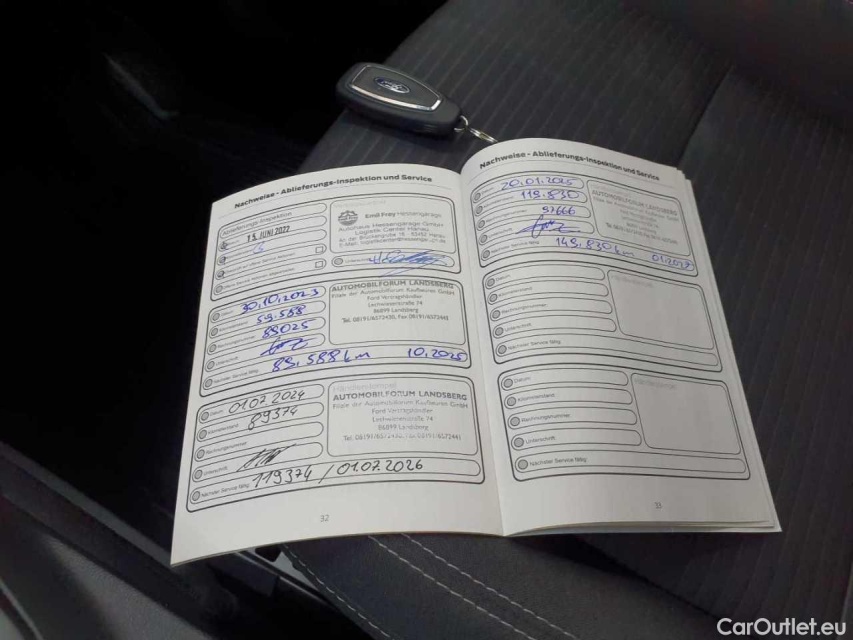 Ford
Nachweise - Ablieferungs-Inspektion und Service
Ablieferungs-Inspektion
15. JUNI 2022
Emil Frey Hessengarage
Autohaus Hessengarage GmbH
Logistik Center Hanau
Datum 30.10.2023
59.588
85025
Unterschrift
Nächster Service fällig 89.588 km 10.2025
AUTOMOBILFORUM LANDSBERG
Filiale der Automobilforum Kaufbeuren GmbH
Ford Vertragshändler
Lechwiesenstraße 74
86899 Landsberg
Tel. 08191/6572430, Fax 08191/6572441
Datum 01.07.2024
Kilometerstand 89374
Rechnungsnummer
Unterschrift
Nächster Service fällig 119374 / 01.07.2026
Händlerstempel
AUTOMOBILFORUM LANDSBERG
Filiale der Automobilforum Kaufbeuren GmbH
Ford Vertragshändler
Lechwiesenstraße 74
86899 Landsberg
32
Nachweise - Ablieferungs-Inspektion und Service
20.01.2025
119.830
97666
Nächster Service fällig 149.830 km 01.2027
AUTOMOBILFORUM LANDSBERG
Datum
Kilometerstand
Rechnungsnummer
Unterschrift
Nächster Service fällig
Datum
Kilometerstand
Rechnungsnummer
Unterschrift
Nächster Service fällig
33
CarOutlet.eu